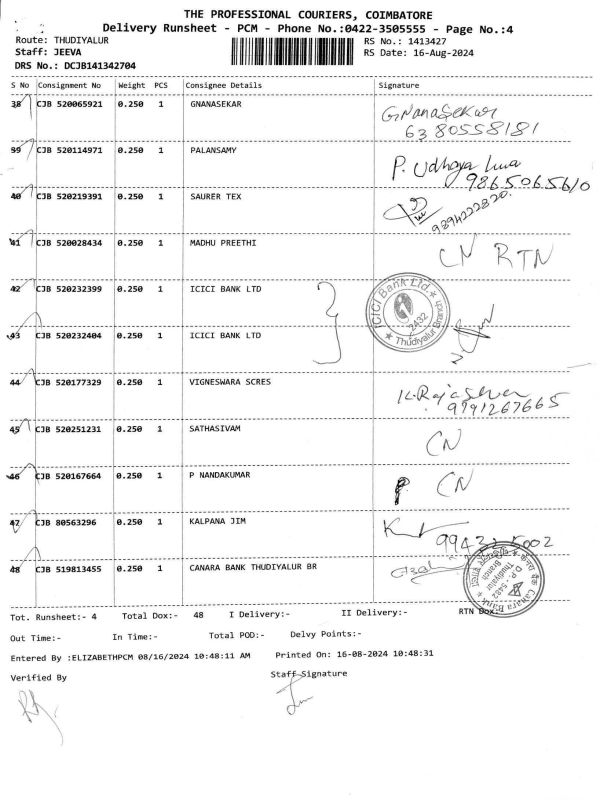 THE PROFESSIONAL COURIERS, COIMBATORE
Delivery Runsheet - PCM - Phone No.:0422-3505555 - Page No.:4
Route: THUDIYALUR RS No.: 1413427
Staff: JEEVA RS Date: 16-Aug-2024
DRS No.: DCJB141342704
S No Consignment No Weight PCS Consignee Details Signature
38 CJB 520065921 0.250 1 GNANASEKAR GNanaSekar
6380558181
39 CJB 520114971 0.250 1 PALANSAMY P. Udhaya
9865065610
40 CJB 520219391 0.250 1 SAURER TEX 9894222820.
41 CJB 520028434 0.250 1 MADHU PREETHI CN RTN
42 CJB 520232399 0.250 1 ICICI BANK LTD
ICICI Bank Ltd. 2432 Thudiyalur Branch
43 CJB 520232404 0.250 1 ICICI BANK LTD
44 CJB 520177329 0.250 1 VIGNESWARA SCRES
9791267665
45 CJB 520251231 0.250 1 SATHASIVAM CN
46 CJB 520167664 0.250 1 P NANDAKUMAR CN
47 CJB 80563296 0.250 1 KALPANA JIM
48 CJB 519813455 0.250 1 CANARA BANK THUDIYALUR BR
Canara Bank D.P.-5482 Thudiyalur Branch
Tot. Runsheet:- 4 Total Dox:- 48 I Delivery:- II Delivery:- RTN Dox:-
Out Time:- In Time:- Total POD:- Delvy Points:-
Entered By :ELIZABETHPCM 08/16/2024 10:48:11 AM Printed On: 16-08-2024 10:48:31
Verified By Staff Signature